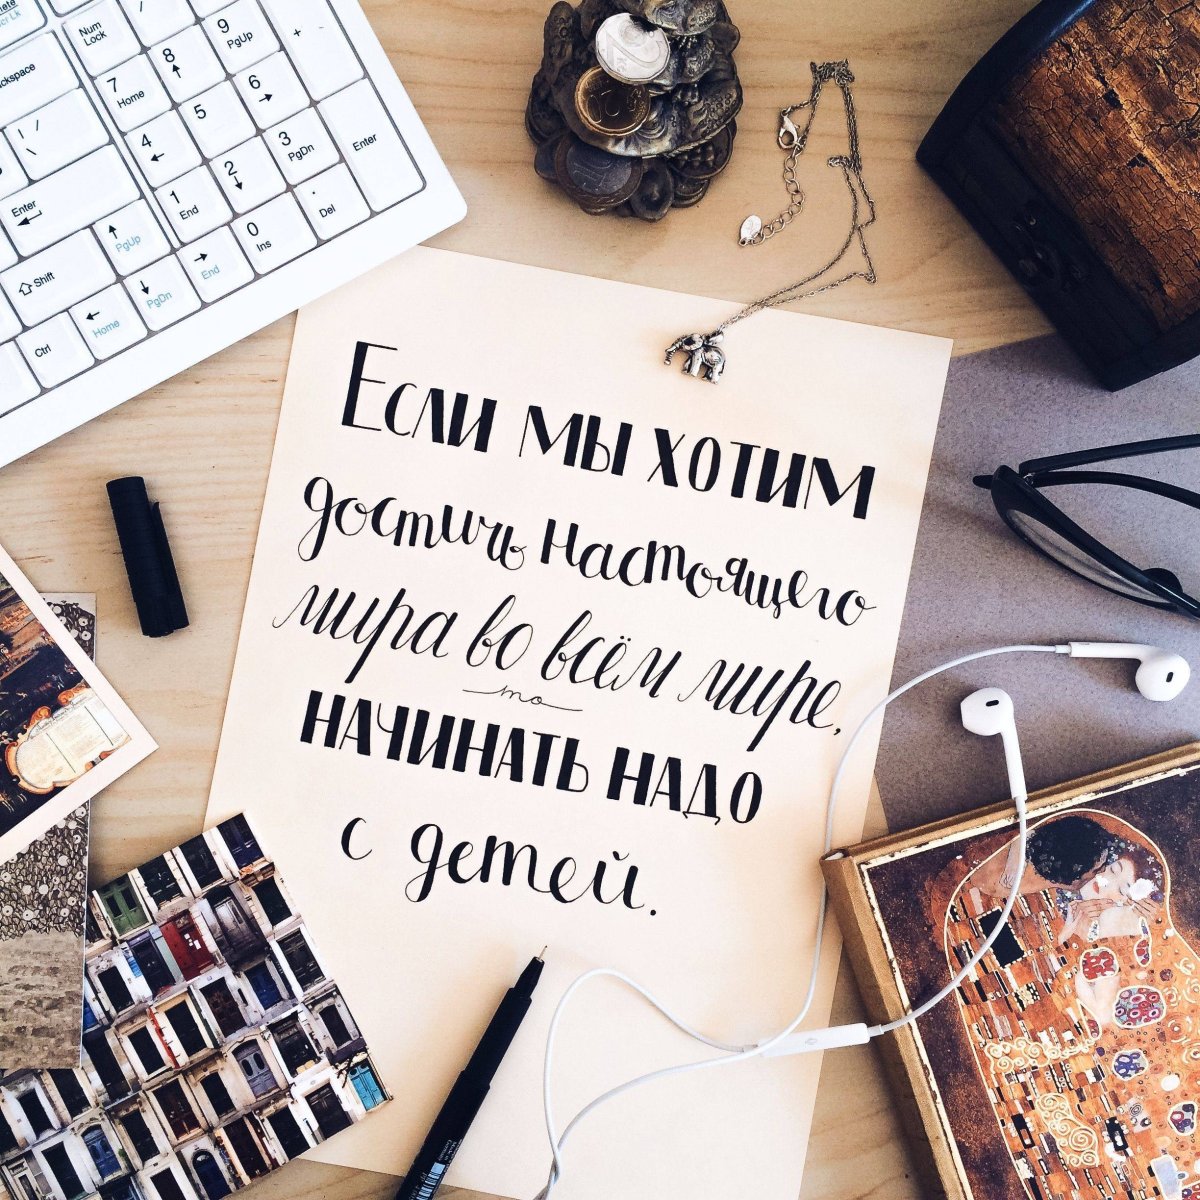 Delete
Ctr Lk
Num
Lock
9
PgUp
+
Backspace
7
Home
8
6
\ /
4
5
3
PgDn
Enter
Enter
1
End
2
.
Del
PgUp
0
Ins
Shift
End
PgDn
Home
Ctrl
Если мы хотим
достичь настоящего
мира во всём мире,
то
начинать надо
с детей.